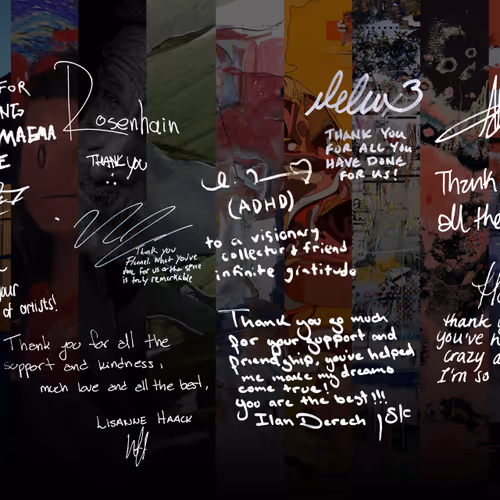 FOR
NG
MAGMA
E
Rosenhain
THANK YOU
THANK YOU
FOR ALL YOU
HAVE DONE
FOR US!
(ADHD)
to a visionary
collector & friend
infinite gratitude
Thank
all the
Thank you
What you've
done for us & the space
is truly remarkable
your
of artists!
Thank you for all the
support and kindness,
much love and all the best,
LISANNE HAACK
Thank you so much
for your support and
friendship, you've helped
me make my dreams
come true!
you are the best!!!
Ilan Derech
thank
you've h
crazy a
I'm so